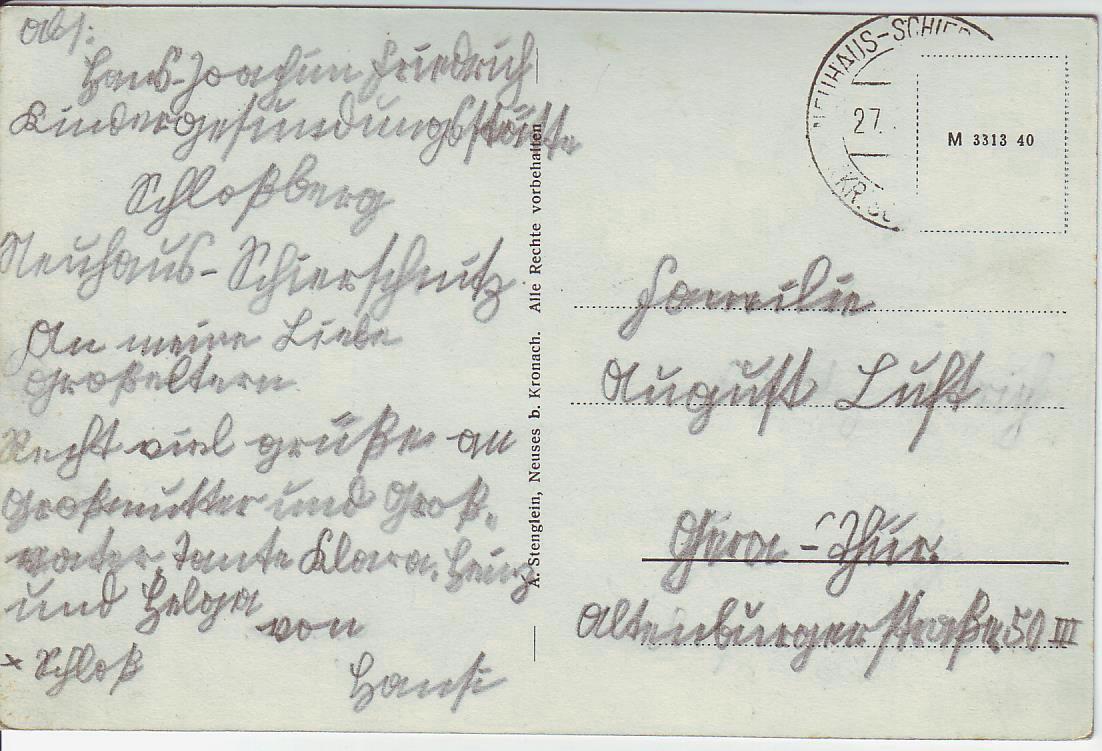 Abs:
Hans-Joachim Friedrich
Kindergesundungsstätte
Schloßberg
Neuhaus-Schierschnitz
An meine Liebe
Großeltern
Recht viel grüße an
Großmutter und Groß-
vater, Tante Klara, Heinz
und Helga
von
× Schloß
Hansi
A. Stenglein, Neuses b. Kronach. Alle Rechte vorbehalten
NEUHAUS-SCHIER
27.
KR. SO
M 3313 40
Familie
August Luft
Gera-Thür.
Altenburgerstraße 50 III